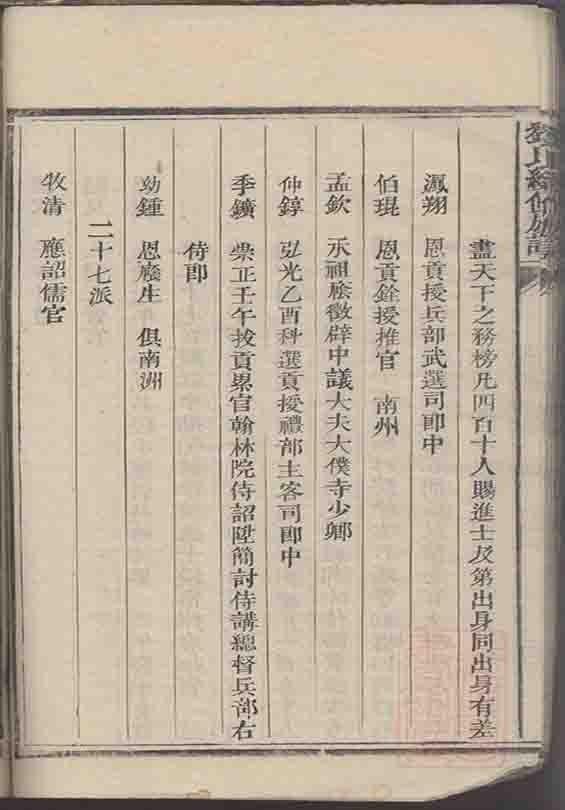 盡天下之務榜凡四百十人賜進士及第出身同出身有差
鳳翔　恩貢授兵部武選司郎中
伯琨　恩貢銓授推官　南州
孟欽　承祖廕徵辟中議大夫大僕寺少卿
仲錞　弘光乙酉科選貢授禮部主客司郎中
季鑛　崇正壬午拔貢累官翰林院侍詔陞簡討侍講總督兵部右
侍郎
幼鍾　恩廕生　俱南洲
二十七派
牧清　應詔儒官